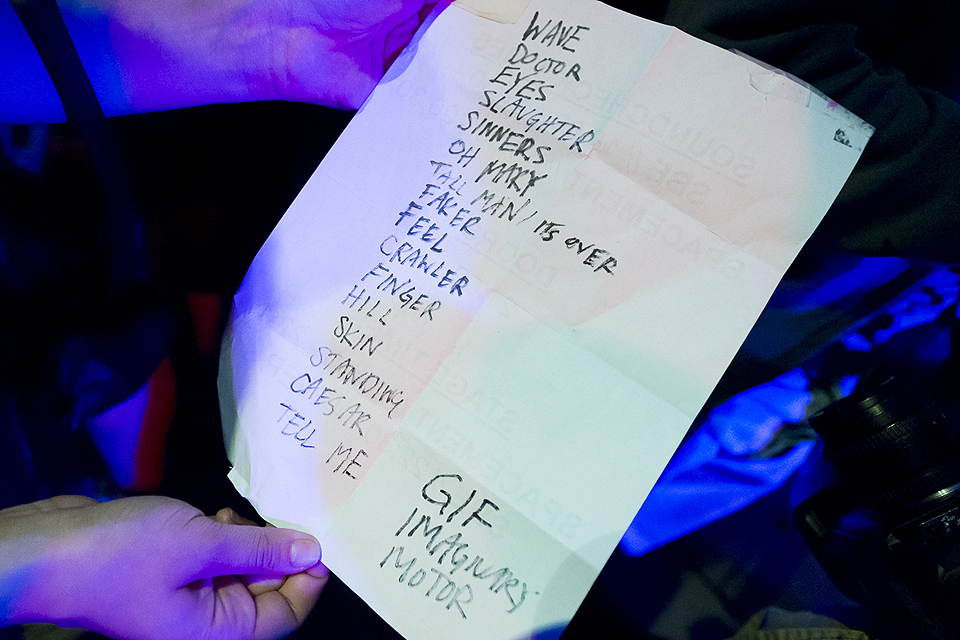 WAVE
DOCTOR
EYES
SLAUGHTER
SINNERS
OH MARY
TALL MAN / ITS OVER
FAKER
FEEL
CRAWLER
FINGER
HILL
SKIN
STANDING
CAESAR
TELL ME
GIF
IMAGINARY
MOTOR